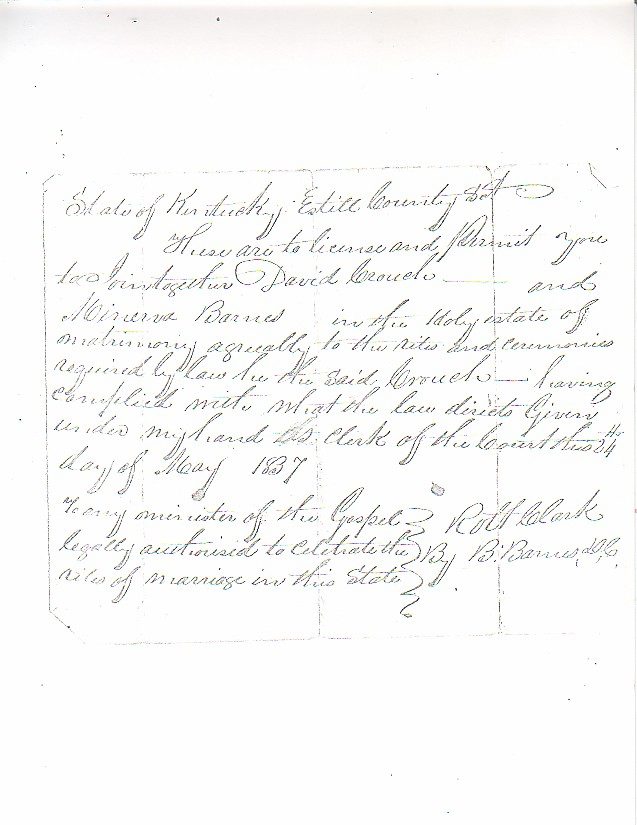 State of Kentucky Estill County Sst
These are to license and Permit you
to Join together David Crouch — and
Minerva Barnes in the Holy estate of
matrimony agreally to the rites and ceremonies
required by law he the said Crouch — having
complied with what the law directs Given
under my hand as clerk of the Court this 24th
day of May 1837
To any minister of the Gospel
legally authorised to celibrate the
rites of marriage in this State
Robt Clark
By B. Barnes, D.C.